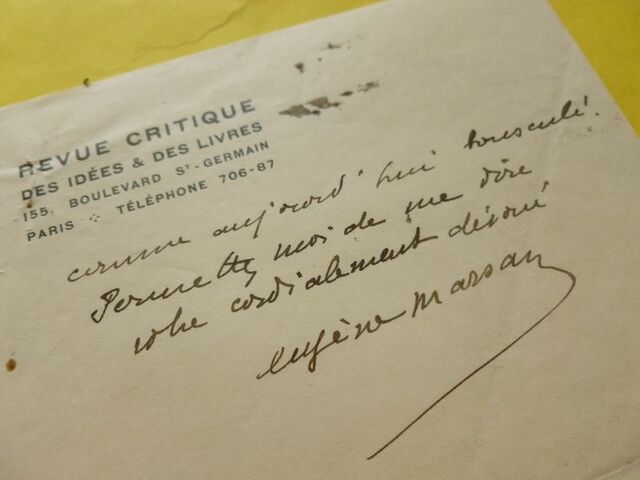 REVUE CRITIQUE
DES IDÉES & DES LIVRES
155, BOULEVARD ST-GERMAIN
PARIS ⁘ TÉLÉPHONE 706-87
comme aujourd'hui bousculé.
Permettez moi de me dire
votre cordialement dévoué
Eugène Marsan